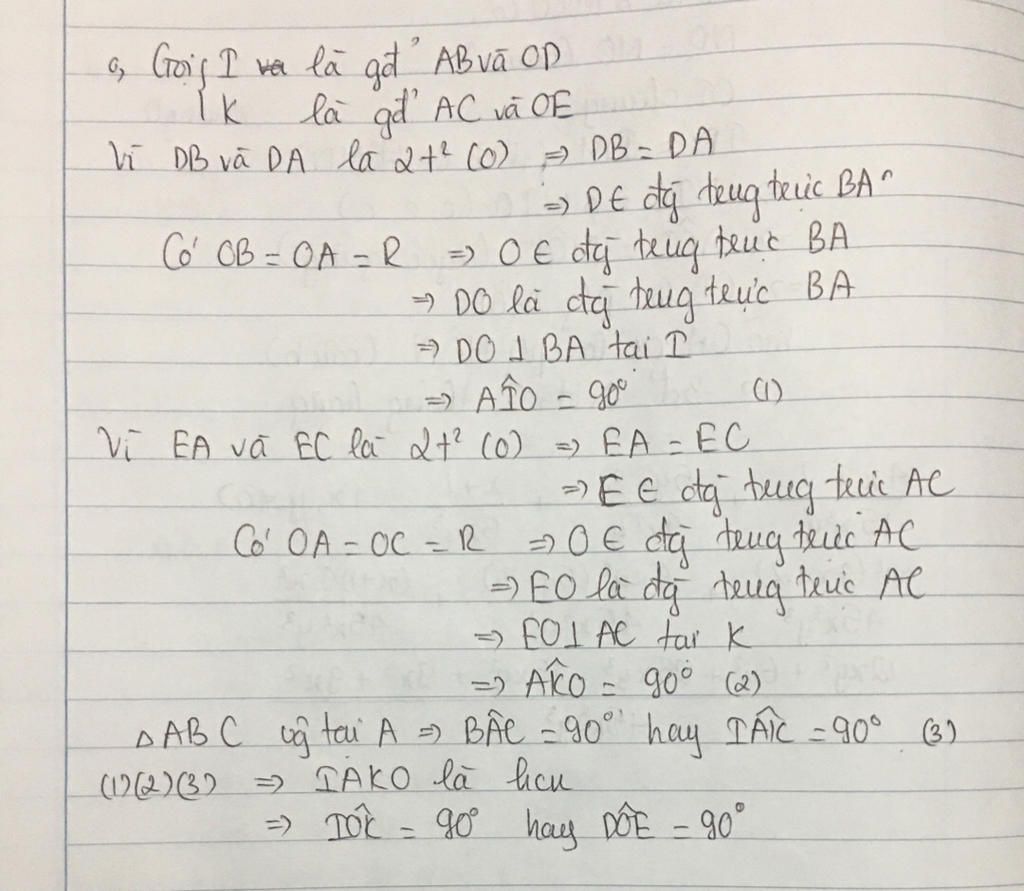 a, Gọi { I là gđ' AB và OD
K là gđ' AC và OE
Vì DB và DA là 2t² (O) ⇒ DB = DA
⇒ D ∈ đg̃ trug trực BA
Có OB = OA = R ⇒ O ∈ đg̃ trug trực BA
⇒ DO là đg̃ trug trực BA
⇒ DO ⊥ BA tại I
⇒ AÎO = 90° (1)
Vì EA và EC là 2t² (O) ⇒ EA = EC
⇒ E ∈ đg̃ trug trực AC
Có OA = OC = R ⇒ O ∈ đg̃ trug trực AC
⇒ EO là đg̃ trug trực AC
⇒ EO ⊥ AC tại K
⇒ AK̂O = 90° (2)
△ABC vg̃ tại A ⇒ BÂC = 90° hay IÂK = 90° (3)
(1)(2)(3) ⇒ IAKO là hcn
⇒ IÔK = 90° hay DÔE = 90°